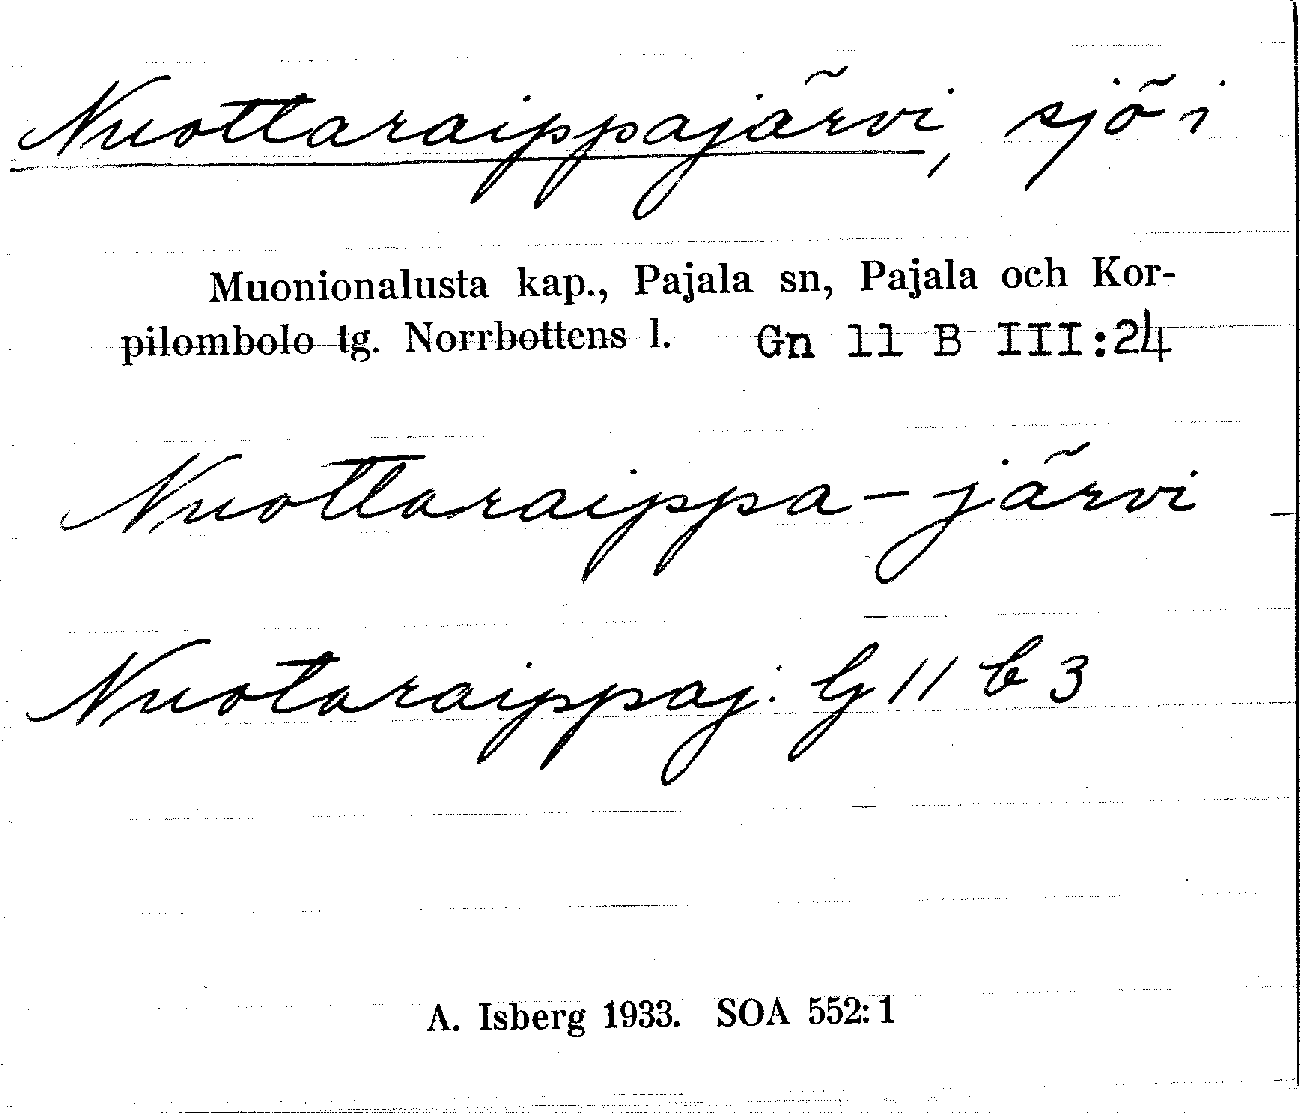 Nuottaraippajärvi, sjö i
Muonionalusta kap., Pajala sn, Pajala och Kor-
pilombolo tg. Norrbottens l. Gn 11 B III:24
Nuottaraippa-järvi
Nuotaraippaj. G 11 b 3
A. Isberg 1933. SOA 552:1